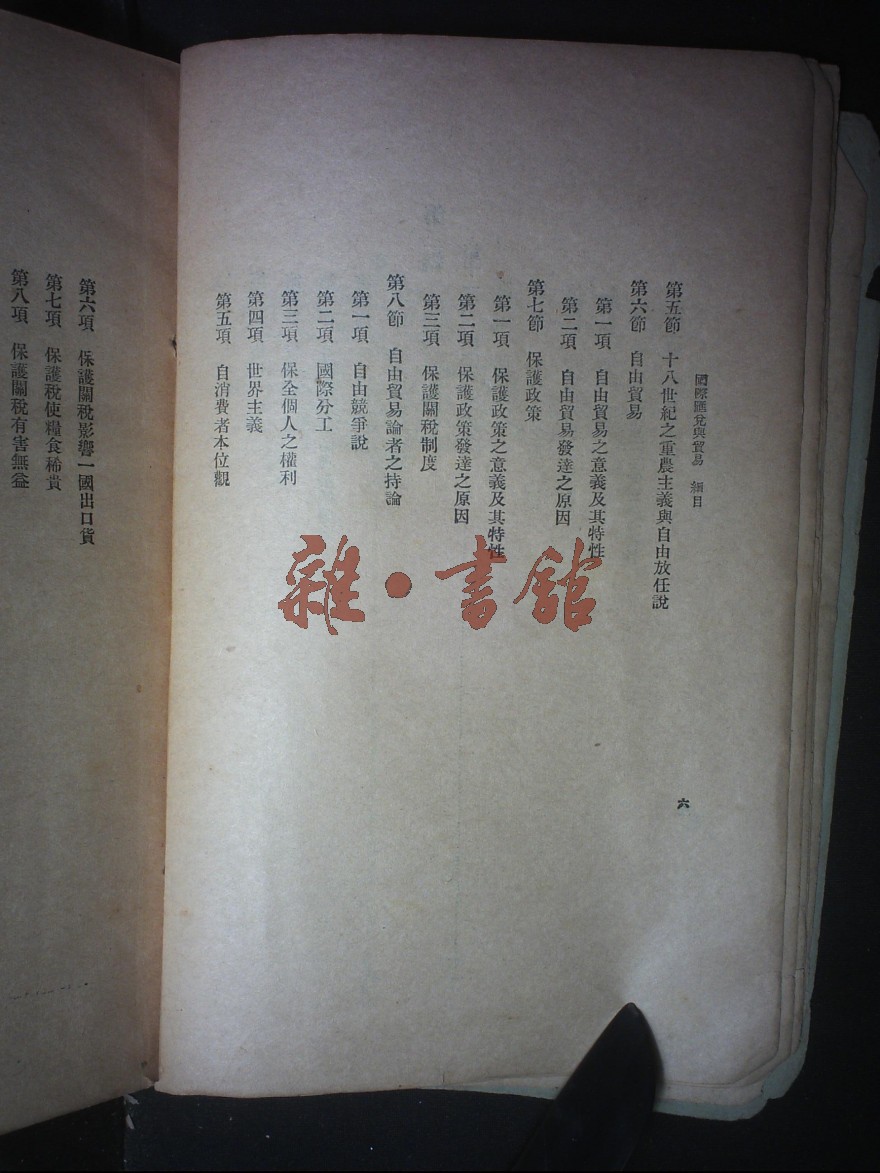 國際匯兌與貿易　細目
第五節　十八世紀之重農主義與自由放任說
第六節　自由貿易
第一項　自由貿易之意義及其特性
第二項　自由貿易發達之原因
第七節　保護政策
第一項　保護政策之意義及其特性
第二項　保護政策發達之原因
第三項　保護關稅制度
第八節　自由貿易論者之持論
第一項　自由競爭說
第二項　國際分工
第三項　保全個人之權利
第四項　世界主義
第五項　自消費者本位觀
六
第六項　保護關稅影響一國出口貨
第七項　保護稅使糧食稀貴
第八項　保護關稅有害無益
雜・書館